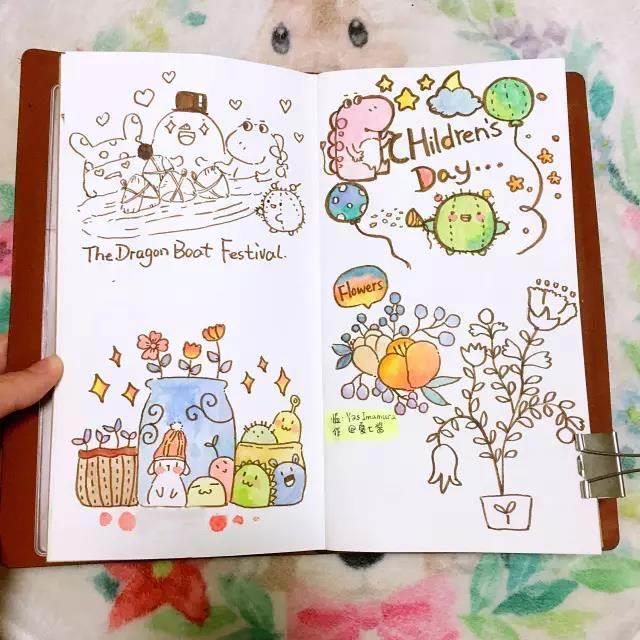 The Dragon Boat Festival.
CHildren's
Day...
Flowers
临: Yas Imamura
作 @葵七酱